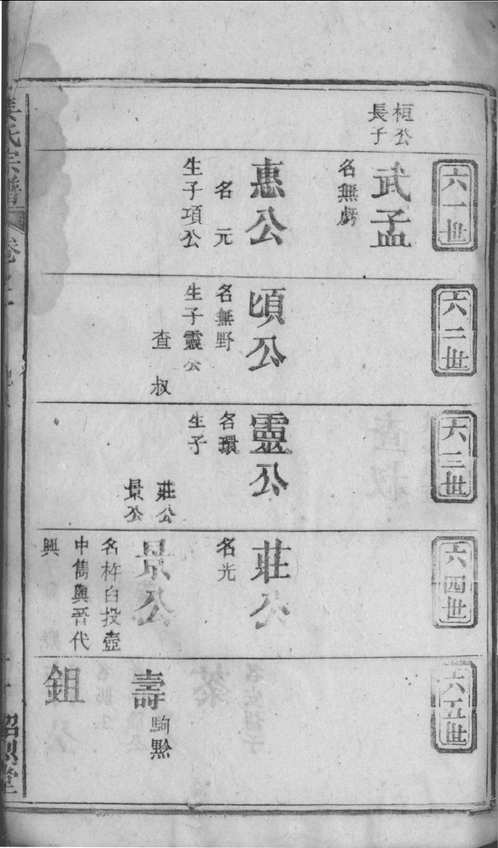 六一世
桓公
長子
武孟
名無虧
惠公
名元
生子項公
六二世
頃公
名無野
生子靈公
查叔
六三世
靈公
名環
生子
莊公
景公
六四世
莊公
名光
景公
名杵臼投壺
中雋與晉代
興
六五世
壽
駒黔
鉏
氏宗譜